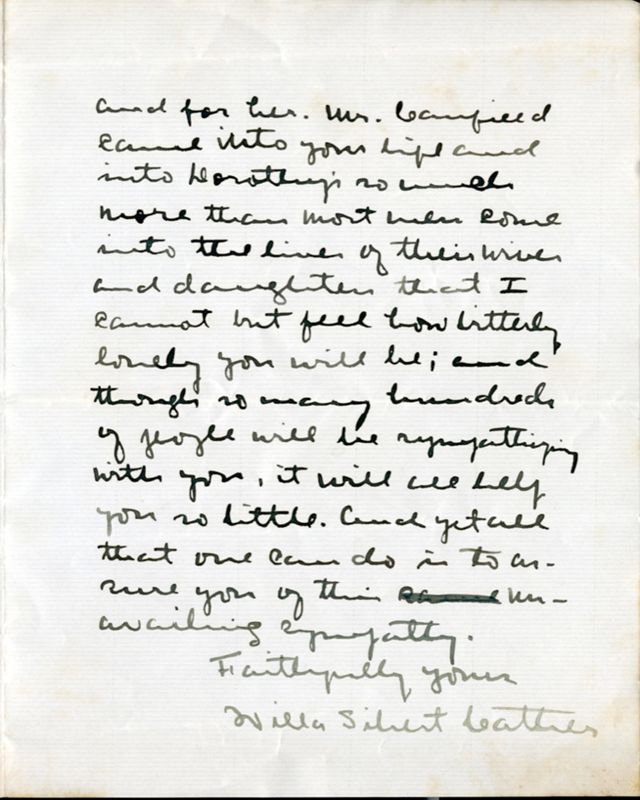 and for her. Mr. Canfield
came into your life and
into Dorothy's so much
more than most men come
into the lives of their wives
and daughters that I
cannot but feel how bitterly
lonely you will be; and
though so many hundreds
of people will be sympathizing
with you, it will all help
you so little. And yet all
that one can do is to as-
sure you of this same un-
availing sympathy.
Faithfully yours
Willa Sibert Cather